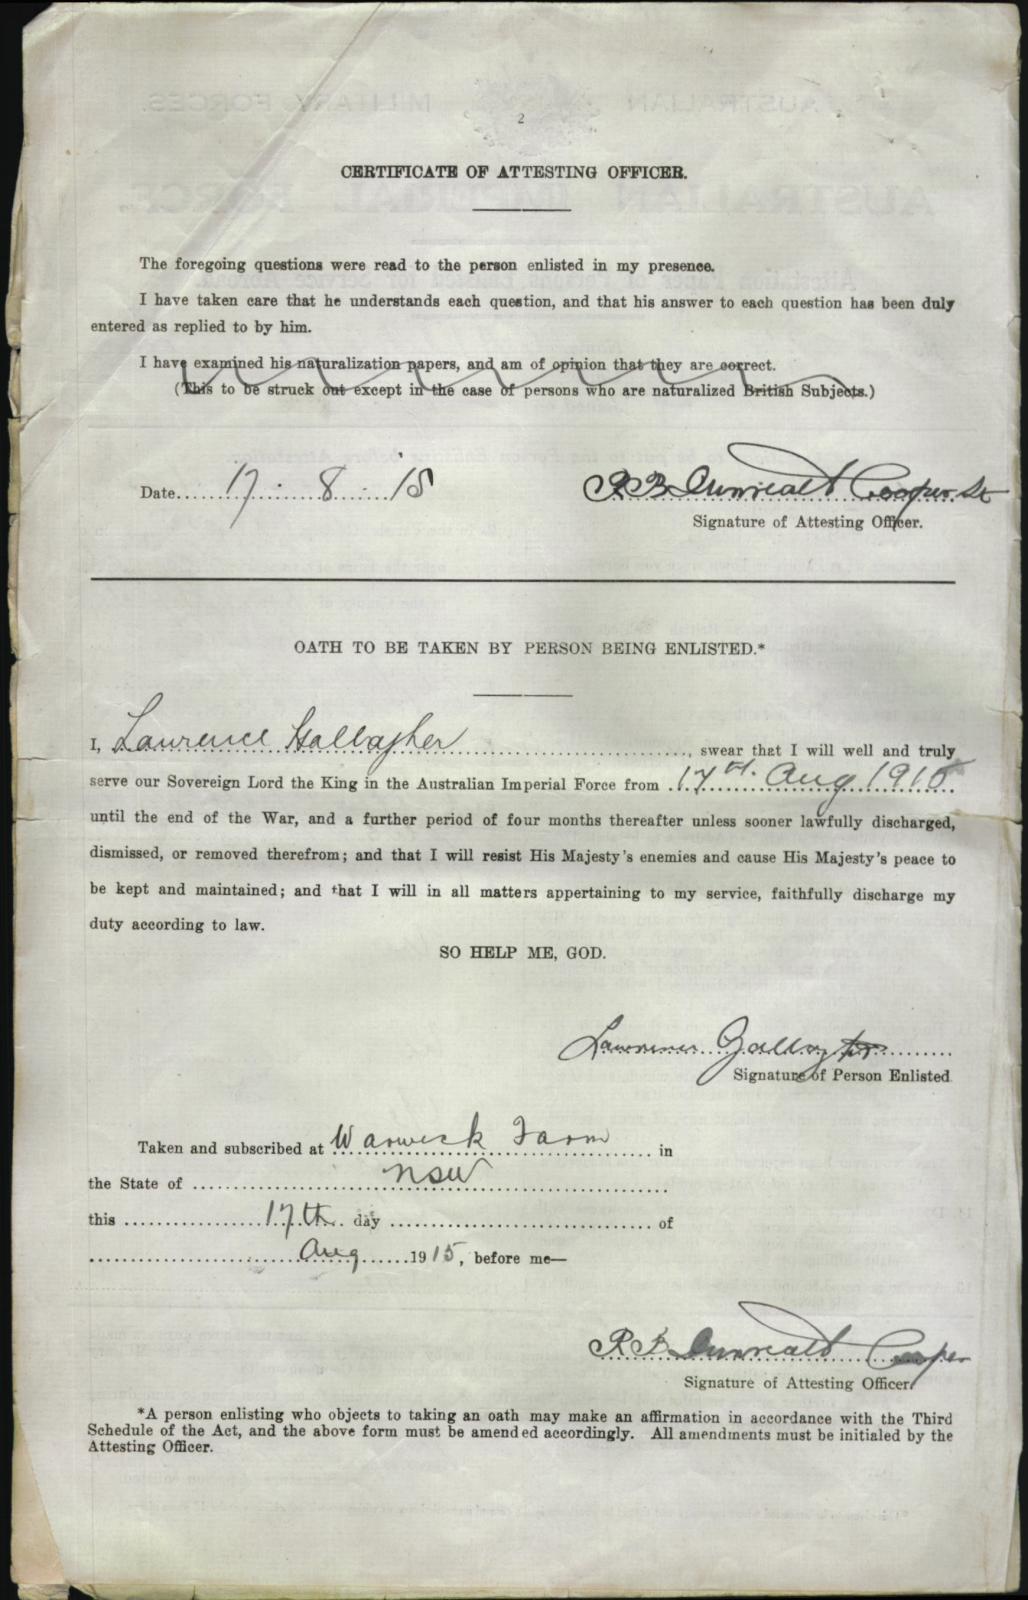 2
CERTIFICATE OF ATTESTING OFFICER.
The foregoing questions were read to the person enlisted in my presence.
I have taken care that he understands each question, and that his answer to each question has been duly
entered as replied to by him.
I have examined his naturalization papers, and am of opinion that they are correct.
(This to be struck out except in the case of persons who are naturalized British Subjects.)
Date 17 . 8 . 15 R B Cooper Lt
Signature of Attesting Officer.
OATH TO BE TAKEN BY PERSON BEING ENLISTED.*
I, Lawrence Gallagher, swear that I will well and truly
serve our Sovereign Lord the King in the Australian Imperial Force from 17th. Aug 1915
until the end of the War, and a further period of four months thereafter unless sooner lawfully discharged,
dismissed, or removed therefrom; and that I will resist His Majesty's enemies and cause His Majesty's peace to
be kept and maintained; and that I will in all matters appertaining to my service, faithfully discharge my
duty according to law.
SO HELP ME, GOD.
Lawrence Gallagher
Signature of Person Enlisted
Taken and subscribed at Warwick Farm in
the State of NSW
this 17th day of
Aug 1915, before me—
R B Cooper
Signature of Attesting Officer.
*A person enlisting who objects to taking an oath may make an affirmation in accordance with the Third
Schedule of the Act, and the above form must be amended accordingly. All amendments must be initialed by the
Attesting Officer.